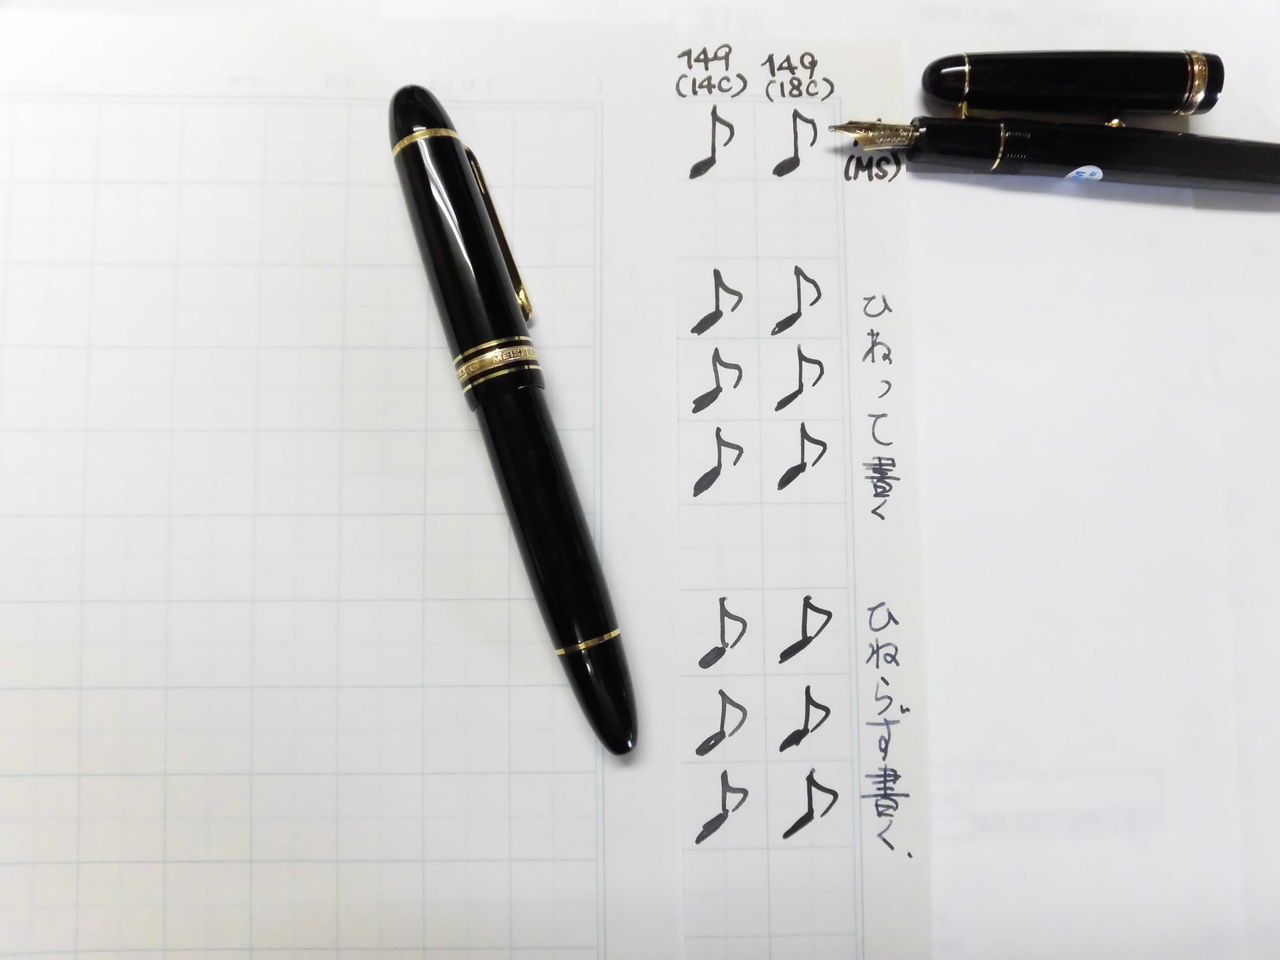 149 149
(14C) (18C)
(MS)
ひねって書く
ひねらず書く.